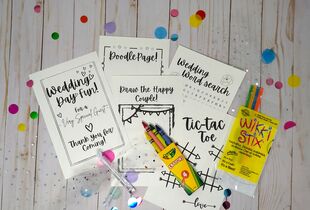 Wedding
Day Fun!
For a
Very Special Guest
Thank you for
Coming!
Doodle Page!
Draw the Happy
Couple!
Wedding
Word search
Tic-Tac
Toe
love
Crayola
Wikki
Stix